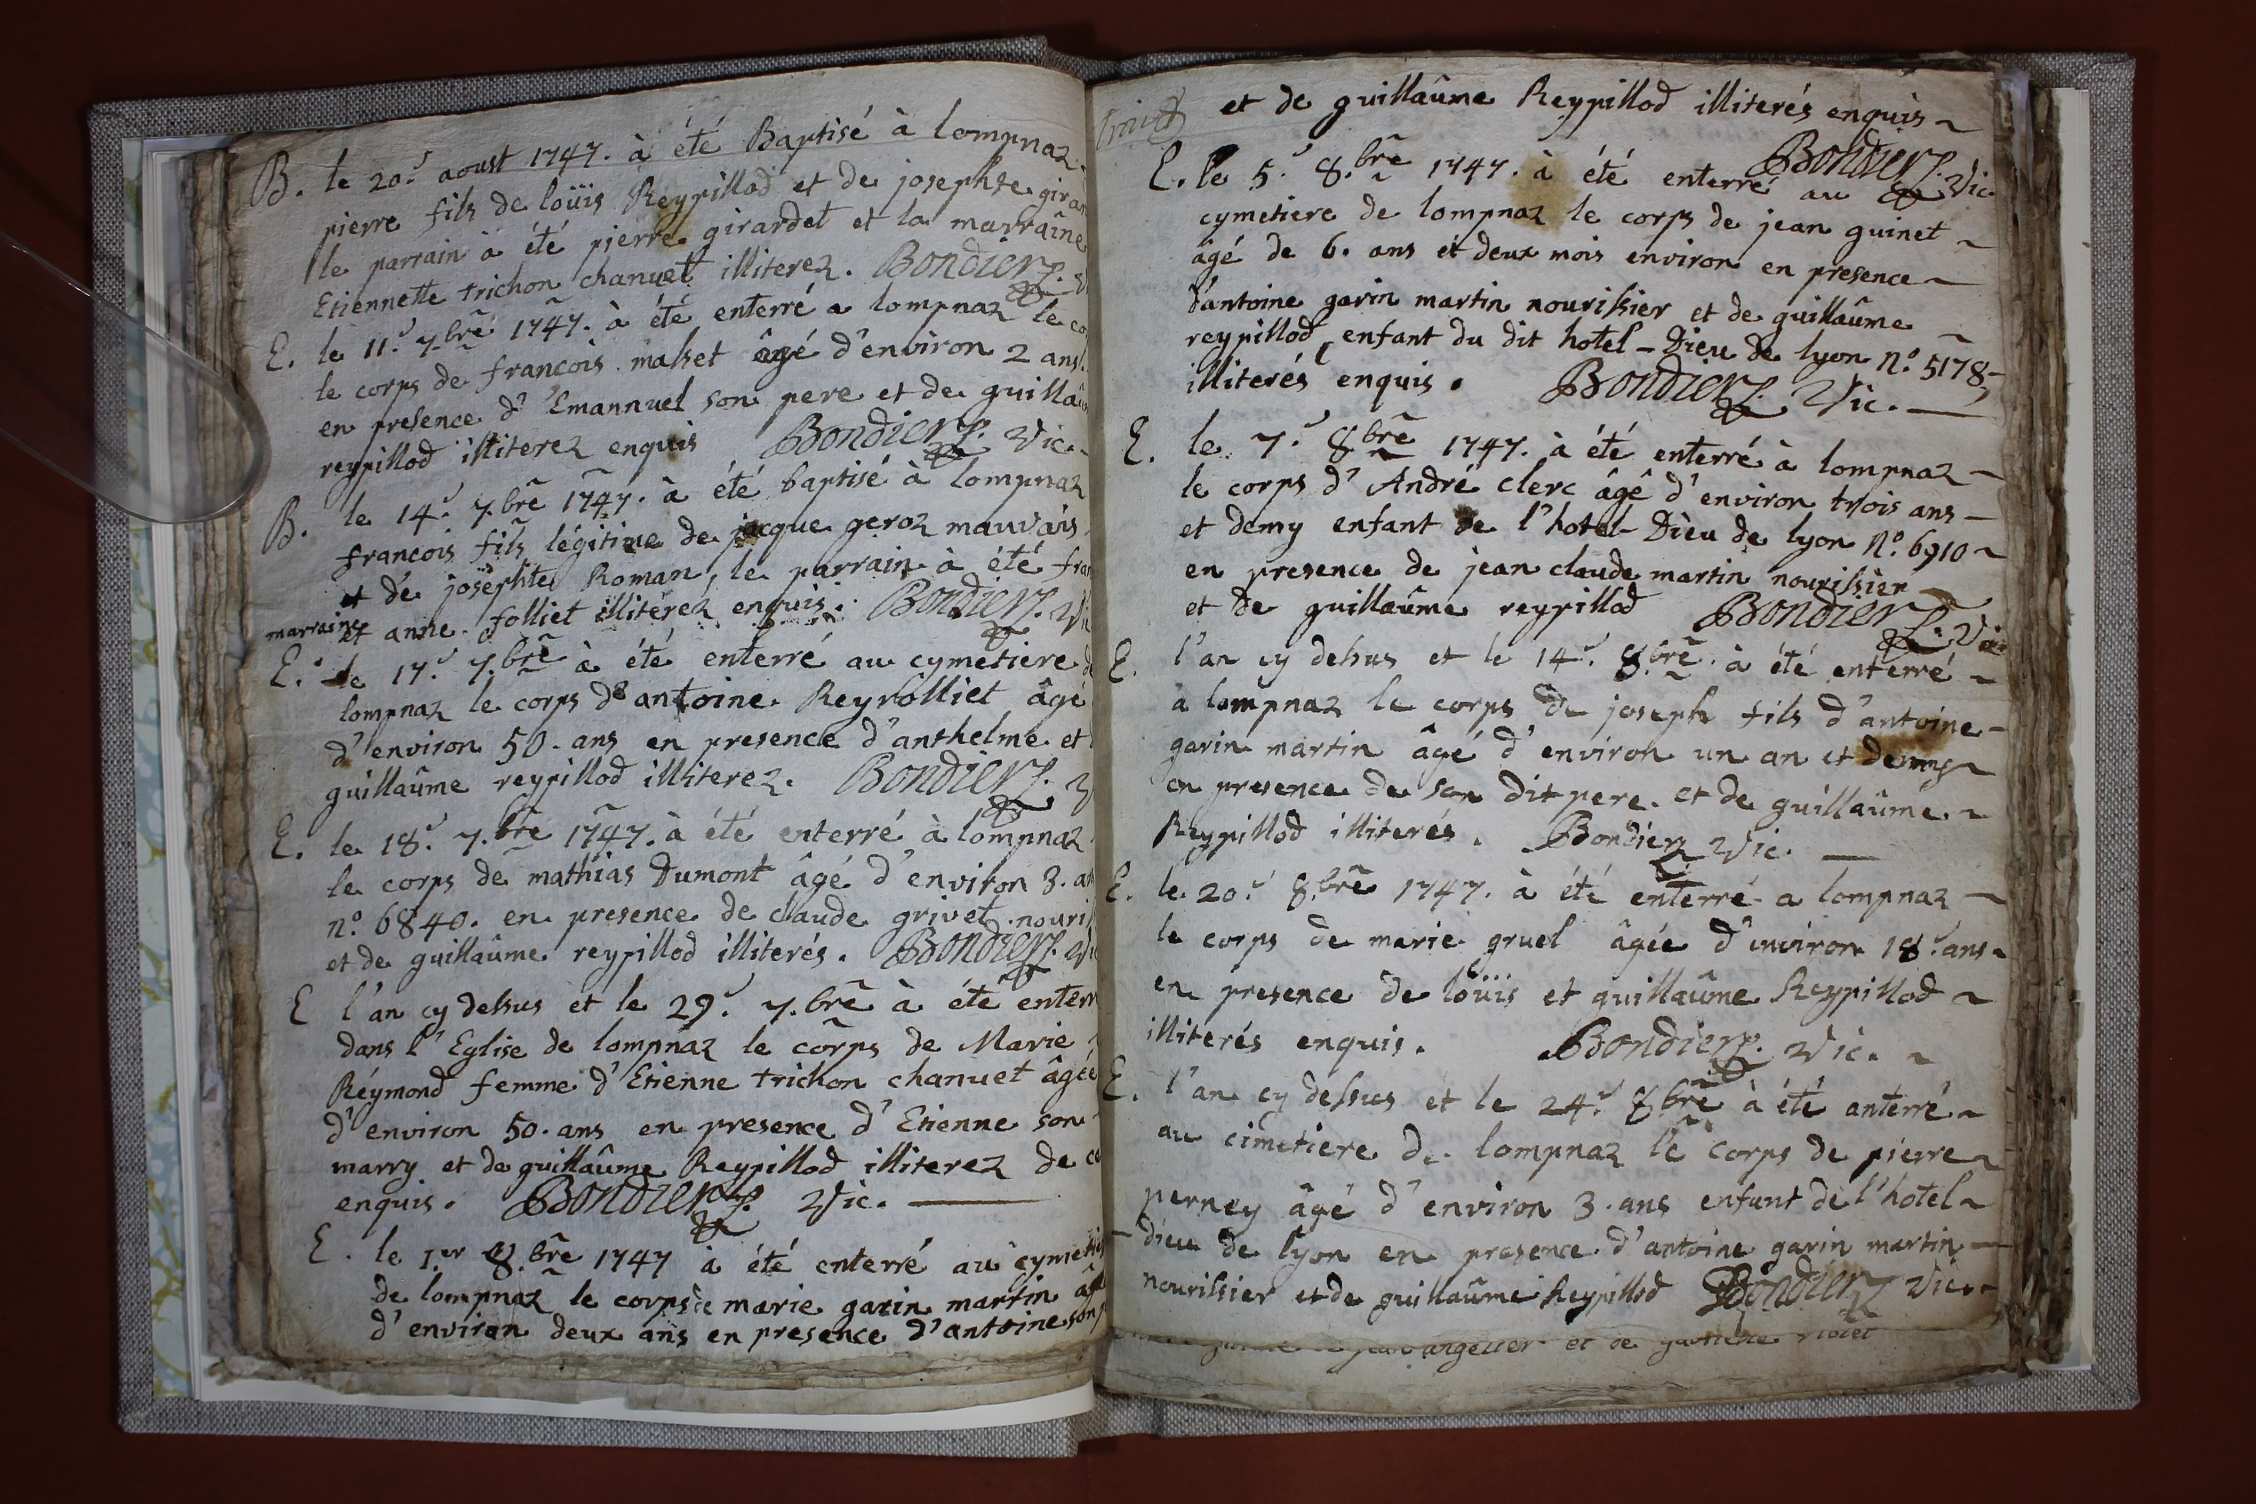 B. le 20.e aoust 1747. à été Baptisé à lompnaz
pierre fils de loüis Reypillod et de josephte girar
le parrain à été pierre girardet et la marraîne
Etiennette trichon chanuet illiterez. Bondier p.
E. le 11.e 7.bre 1747. à été enterré a lompnaz le co
le corps de francois masset âgé d'environ 2 ans.
en presence d'Emannuel son pere et de guillaû
reypillod illiterez enquis Bondier p. Vic.
B. le 14.e 7.bre 1747. à été baptisé à lompnaz
francois fils légitime de jacque geroz mauvais
et de josephte Roman, le parrain à été fran
marraine et anne folliet illiterez enquis. Bondier p. Vic
E. le 17.e 7.bre à été enterré au cymetiere de
lompnaz le corps de antoine Reyrolliet âgé
d'environ 50. ans en presence d'anthelme et
guillaûme reypillod illiterez. Bondier p. V
E. le 18.e 7.bre 1747. à été enterré à lompnaz
le corps de mathias Dumont âgé d'environ 3. an
n.o 6840. en presence de claude grivet nouris
et de guillaûme reypillod illiterés. Bondier p. Vi
E l'an cy dessus et le 29.e 7.bre à été enterr
dans l'Eglise de lompnaz le corps de Marie
Réymond femme d'Etienne trichon chanuet âgée
d'environ 50. ans en presence d'Etienne son
marry et de guillaûme Reypillod illiterez de ce
enquis. Bondier p. Vic.
E. le 1.er 8.bre 1747 à été enterré au cymetie
de lompnaz le corps de marie garin martin âg
d'environ deux ans en presence d'antoine son p
et de guillaûme Reypillod illiterés enquis
Bondier p. Vic.
E. le 5.e 8.bre 1747. à été enterré au
cymetiere de lompnaz le corps de jean guinet
âgé de 6. ans et deux mois environ en presence
d'antoine garin martin nourissier et de guillaûme
reypillod, enfant du dit hotel-Dieu de lyon N.o 5178
illiterés enquis. Bondier p. Vic.
E. le 7.e 8.bre 1747. à été enterré à lompnaz
le corps d'André clerc âgé d'environ trois ans
et demy enfant de l'hotel-Dieu de lyon N.o 6910
en presence de jean claude martin nourissier
et de guillaûme reypillod Bondier p. Vic
E. l'an cy dessus et le 14.e 8.bre à été enterré
a lompnaz le corps de joseph fils d'antoine
garin martin âgé d'environ un an et demy
en presence de son dit pere et de guillaûme
Reypillod illiterés. Bondier Vic.
E. le 20.e 8.bre 1747. à été enterré a lompnaz
le corps de marie gruel âgée d'environ 18. ans
en presence de loüis et guillaûme Reypillod
illiterés enquis. Bondier p. Vic.
E. l'an cy dessus et le 24.e 8.bre à été anterré
au cimetiere de lompnaz le corps de pierre
perney âgé d'environ 3. ans enfant de l'hotel
dieu de lyon en presence d'antoine garin martin
nourissier et de guillaûme Reypillod Bondier Vic.
angelier et de